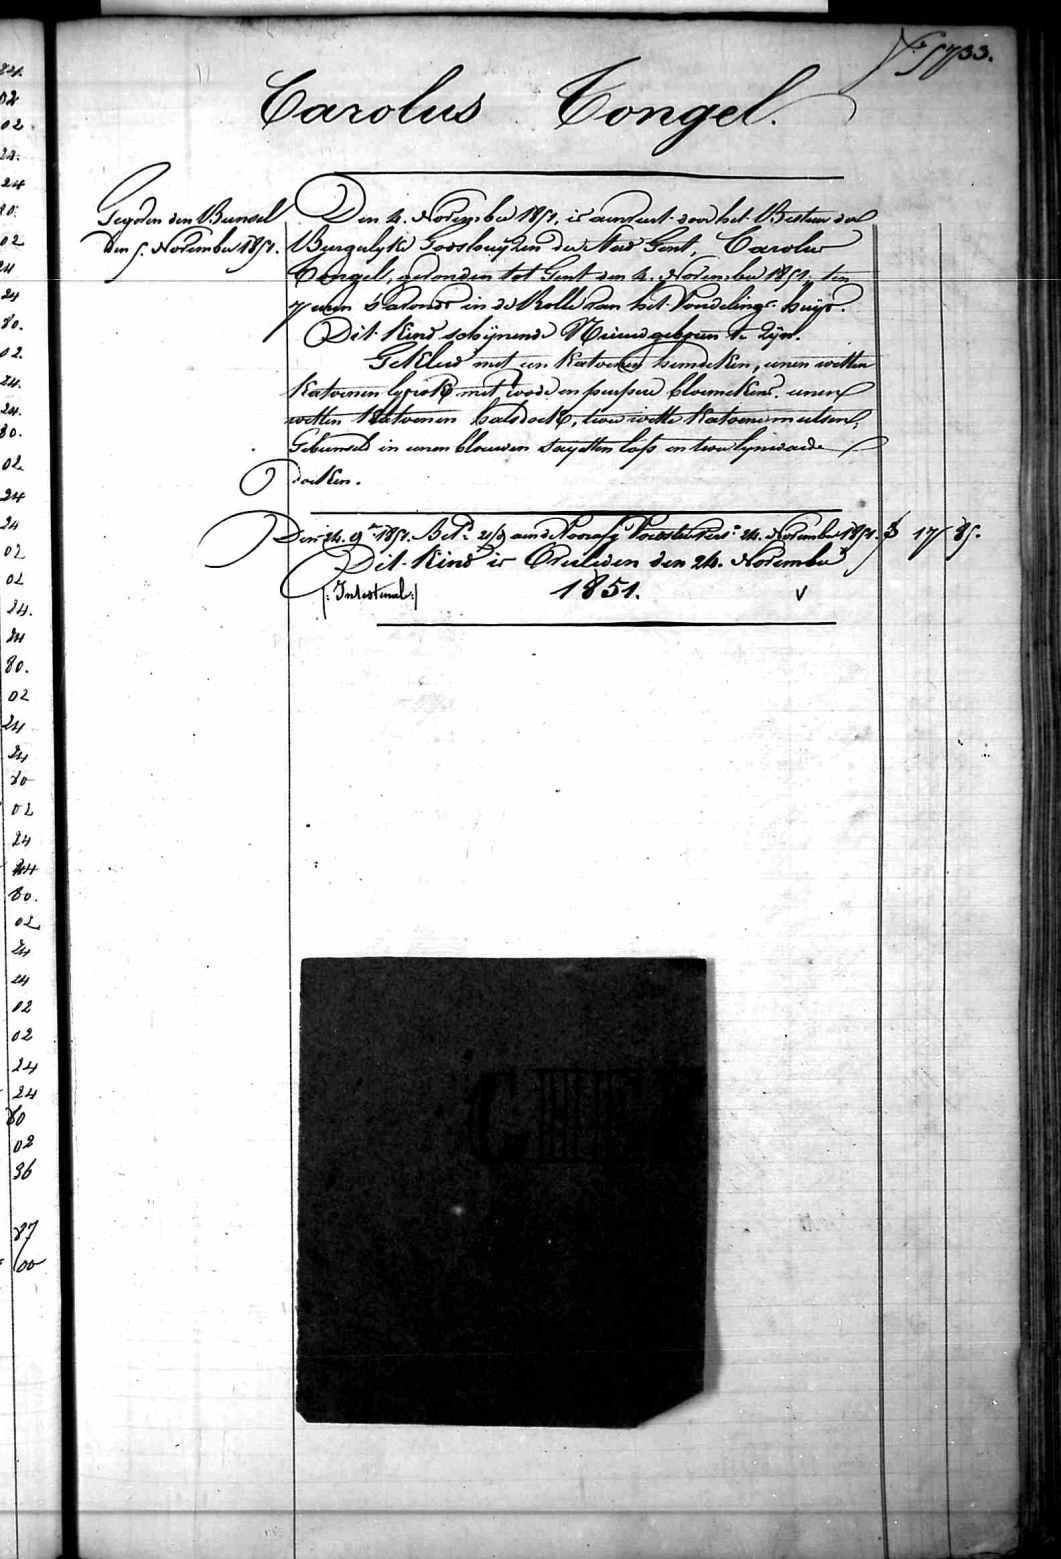 F° 5733.
Carolus Tongel.
Gegeven den Bunsel
den 5. November 1851.
Den 4. November 1851. is aenveert door het Bestuer der
Burgelyke Godshuyzen der Stad Gent, Carolus
Tongel, gevonden tot Gent den 4. November 1851, ten
7 uren s'avonds in de Rolle van het Vondelings huys.
Dit Kind schynende Nieuwgeboren te zyn.
Gekleed met een Katoenen hemdeken, eenen witten
Katoenen met roode en purpere bloemekens, eenen
witten Katoenen halsdoek, twee witte Katoene mutsen,
Gebunseld in eenen blouwen sayetten laps en twee lynwaede
doeken.
Den 24. 9er 1851. Bet. aen de 24. November 1851. 17 85.
Dit Kind is Overleden den 24. November
1851.
|: Intestinal :|
v
02
02
24
80.
02
24
24
80.
02.
24.
24.
80.
02
24
24
02
02
24.
24
80.
02
24
24
80
02
24
24
80.
02
24
24
02
02
24
24
80
02
36
87
00